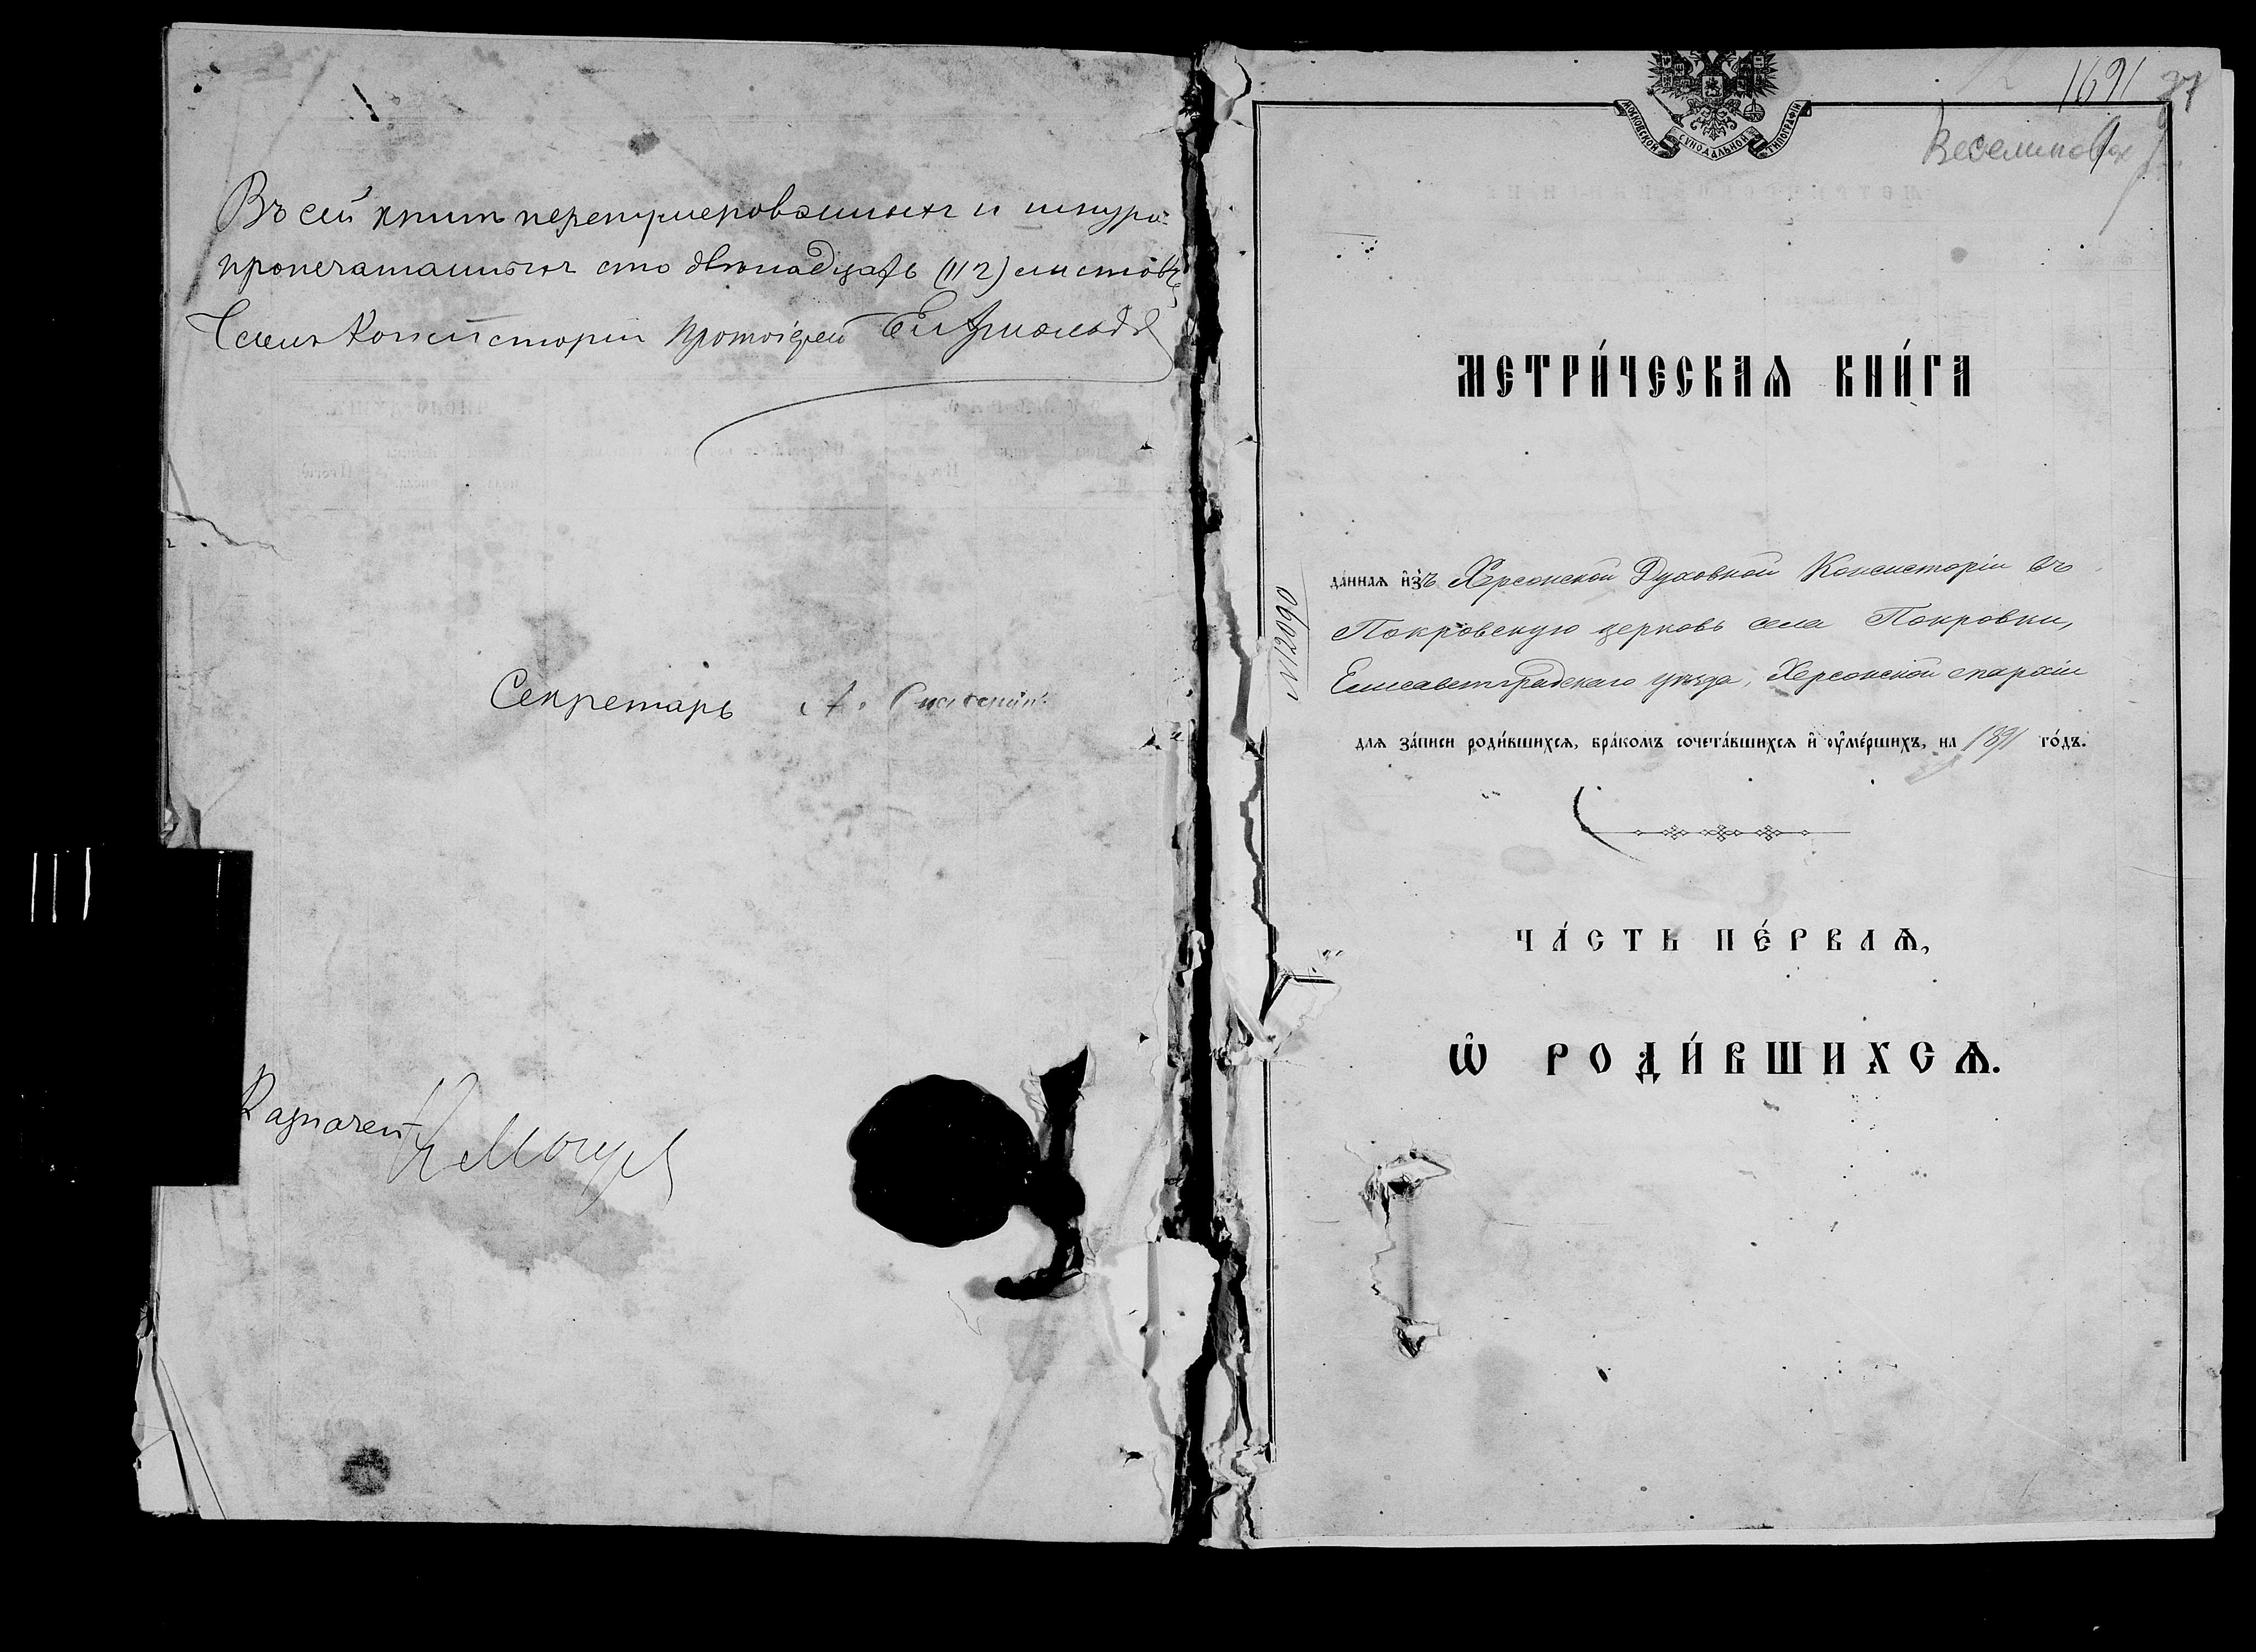 Въ сей книгѣ перенумерованныхъ и шнуро-
пропечатанныхъ сто двѣнадцать (112) листовъ
Членъ Консисторіи Протоіерей
Секретарь А.
Казначей
МОСКОВСКОЙ СѴНОДАЛЬНОЙ ТИПОГРАФІИ
1691 37
МЕТРИ́ЧЕСКАѦ КНИ́ГА
№12090
да́ннаѧ и҆зъ Херсонской Духовной Консисторіи въ
Покровскую церковь села Покровки,
Елисаветградскаго уѣзда, Херсонской епархіи
длѧ за́писи роди́вшихсѧ, бра́комъ сочета́вшихсѧ и҆ ᲂу҆ме́ршихъ, на 1891 го́дъ.
ЧА́СТЬ ПЕ́РВАѦ,
Ѽ РОДИ́ВШИХСѦ.